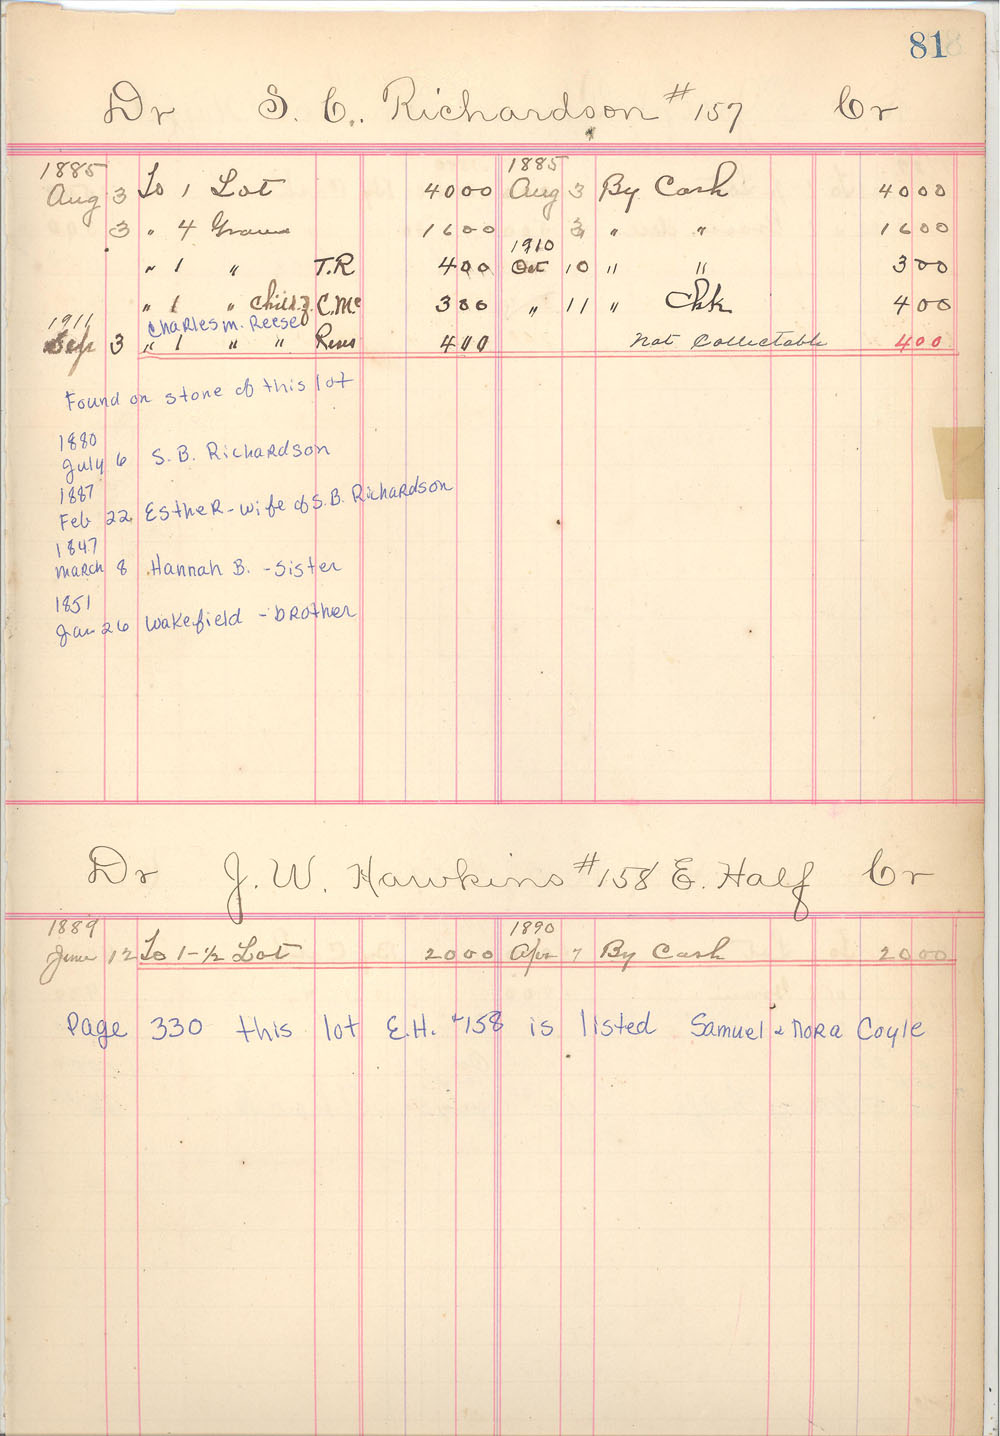 81
Dr S. C. Richardson #157 Cr
1885 1885
Aug 3 To 1 Lot 4000 Aug 3 By Cash 4000
3 " 4 Graves 1600 3 " " 1600
1910
" 1 " T.R 400 Oct 10 " " 300
" 1 " Child. C. Mc 300 " 11 " Chk 400
1911 Charles M. Reese
Sep 3 " 1 " " Reses 400 Not Collectable 400
Found on stone of this lot
1880
July 6 S. B. Richardson
1887
Feb 22 Esther - wife of S. B. Richardson
1847
March 8 Hannah B. - sister
1851
Jan 26 Wakefield - brother
Dr J. W. Hawkins #158 E. Half Cr
1889 1890
June 12 To 1-½ Lot 2000 Apr 7 By Cash 2000
Page 330 this lot E.H. #158 is listed Samuel & Nora Coyle